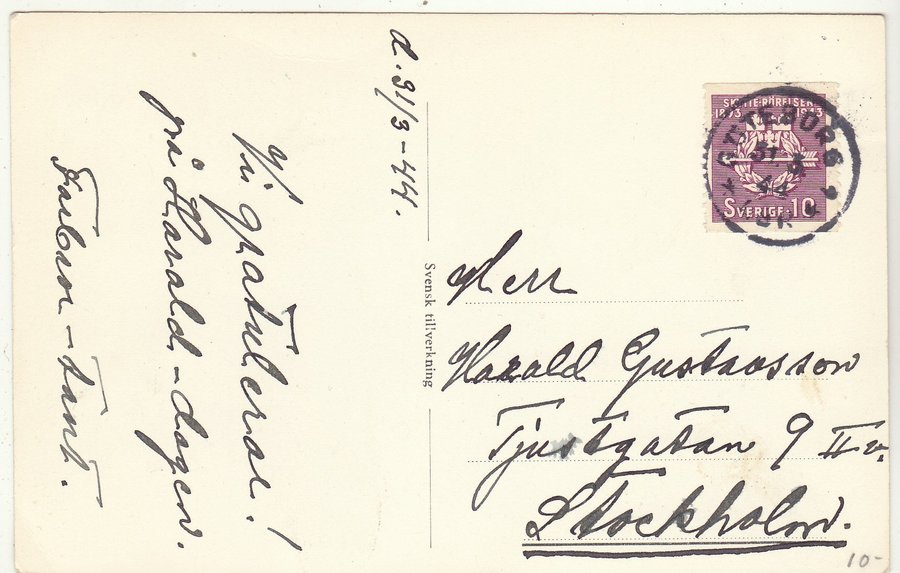 d. 31/3 - 44.
Vi gratulerar!
på Harald-dagen.
Farbror - Tant.
Svensk tillverkning
SKYTTE-RÖRELSEN
1893 1943
SVERIGE 10
GÖTEBORG
31 3
44
Herr
Harald Gustavsson
Tjustgatan 9 II v.
Stockholm.
10-